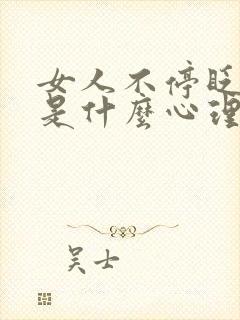 女人不停眨
是什麼心理
吴士